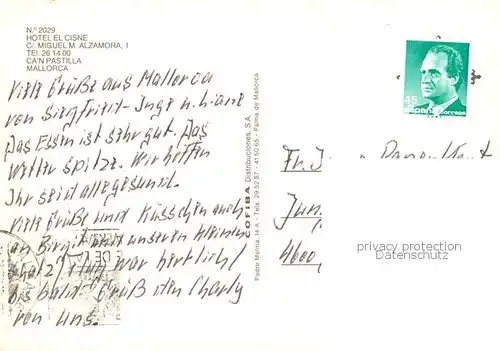 N.º 2029
HOTEL EL CISNE
C/. MIGUEL M. ALZAMORA, 1
Tel. 26 14 00
CA'N PASTILLA
MALLORCA
Viele Grüße aus Mallorca
von Siegfried-Inge u. Liane
Das Essen ist sehr gut. Das
Wetter spitze. Wir hoffen
Ihr seid alle gesund.
Viele Grüße und Küsschen auch
an Birgit und unseren kleinen
Schatz. Flug war herrlich/
bis bald. Grüß den Charly
von uns.
COFIBA Distribuciones, S.A.
Padre Molina, 14 A - Tels. 29 52 87 - 41 50 65 - Palma de Mallorca
15
correos
Fr. J
Jun.
4600
privacy protection
ansichtskartenversand.com